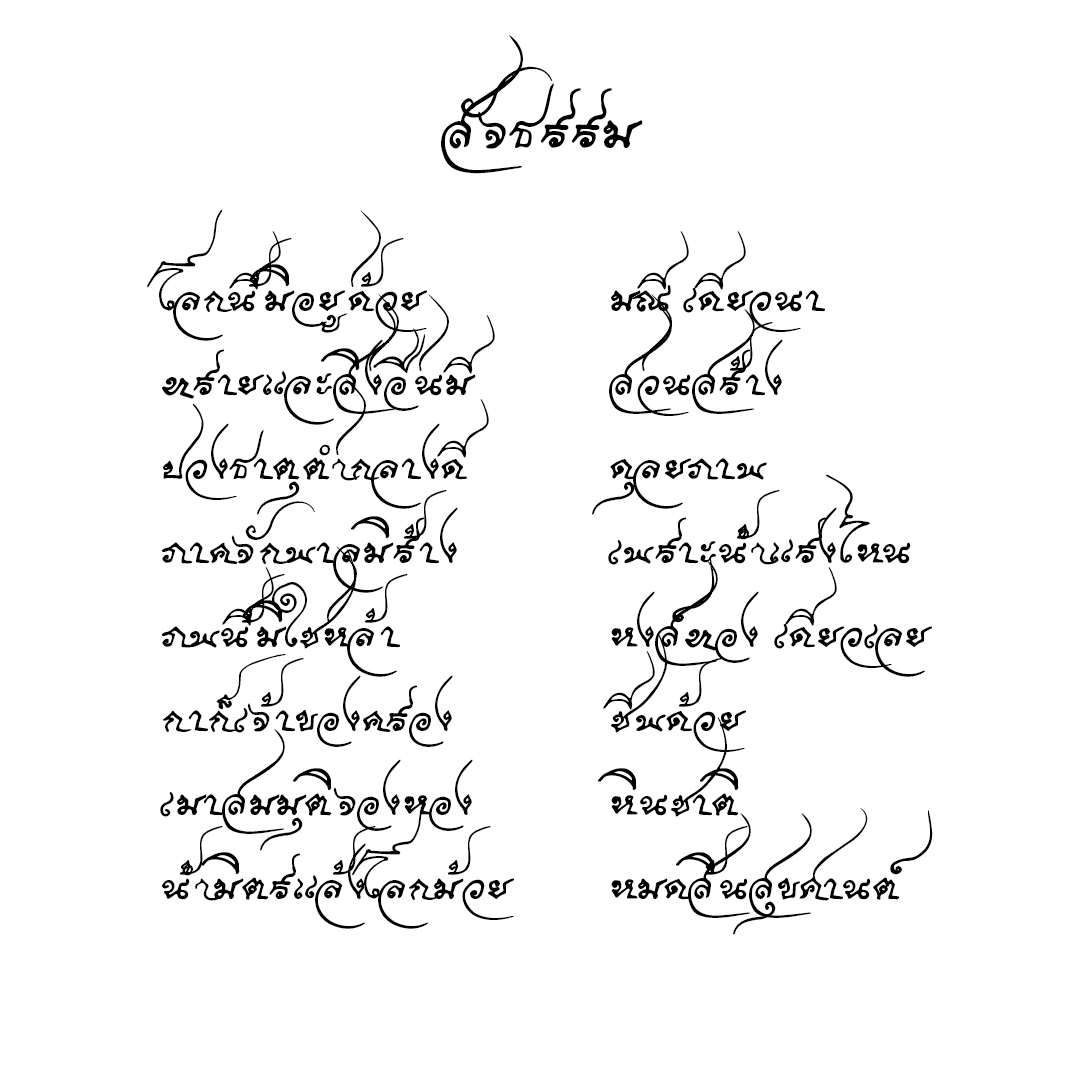 สัจธรรม
โลกนี้มิอยู่ด้วย มณี เดียวนา
ทรายและสิ่งอื่นมี ส่วนสร้าง
ปวงธาตุต่ำกลางดี ดุลยภาพ
ภาคจักพาลมิร้าง เพราะน้ำแรงไหน
ภพนี้มิใช่หล้า หงส์ทอง เดียวเลย
กาก็เจ้าของครอง ชีพด้วย
เมาสมมุติจองหอง หินชาติ
น้ำมิตรแล้งโลกม้วย หมดสิ้นสุขศานต์